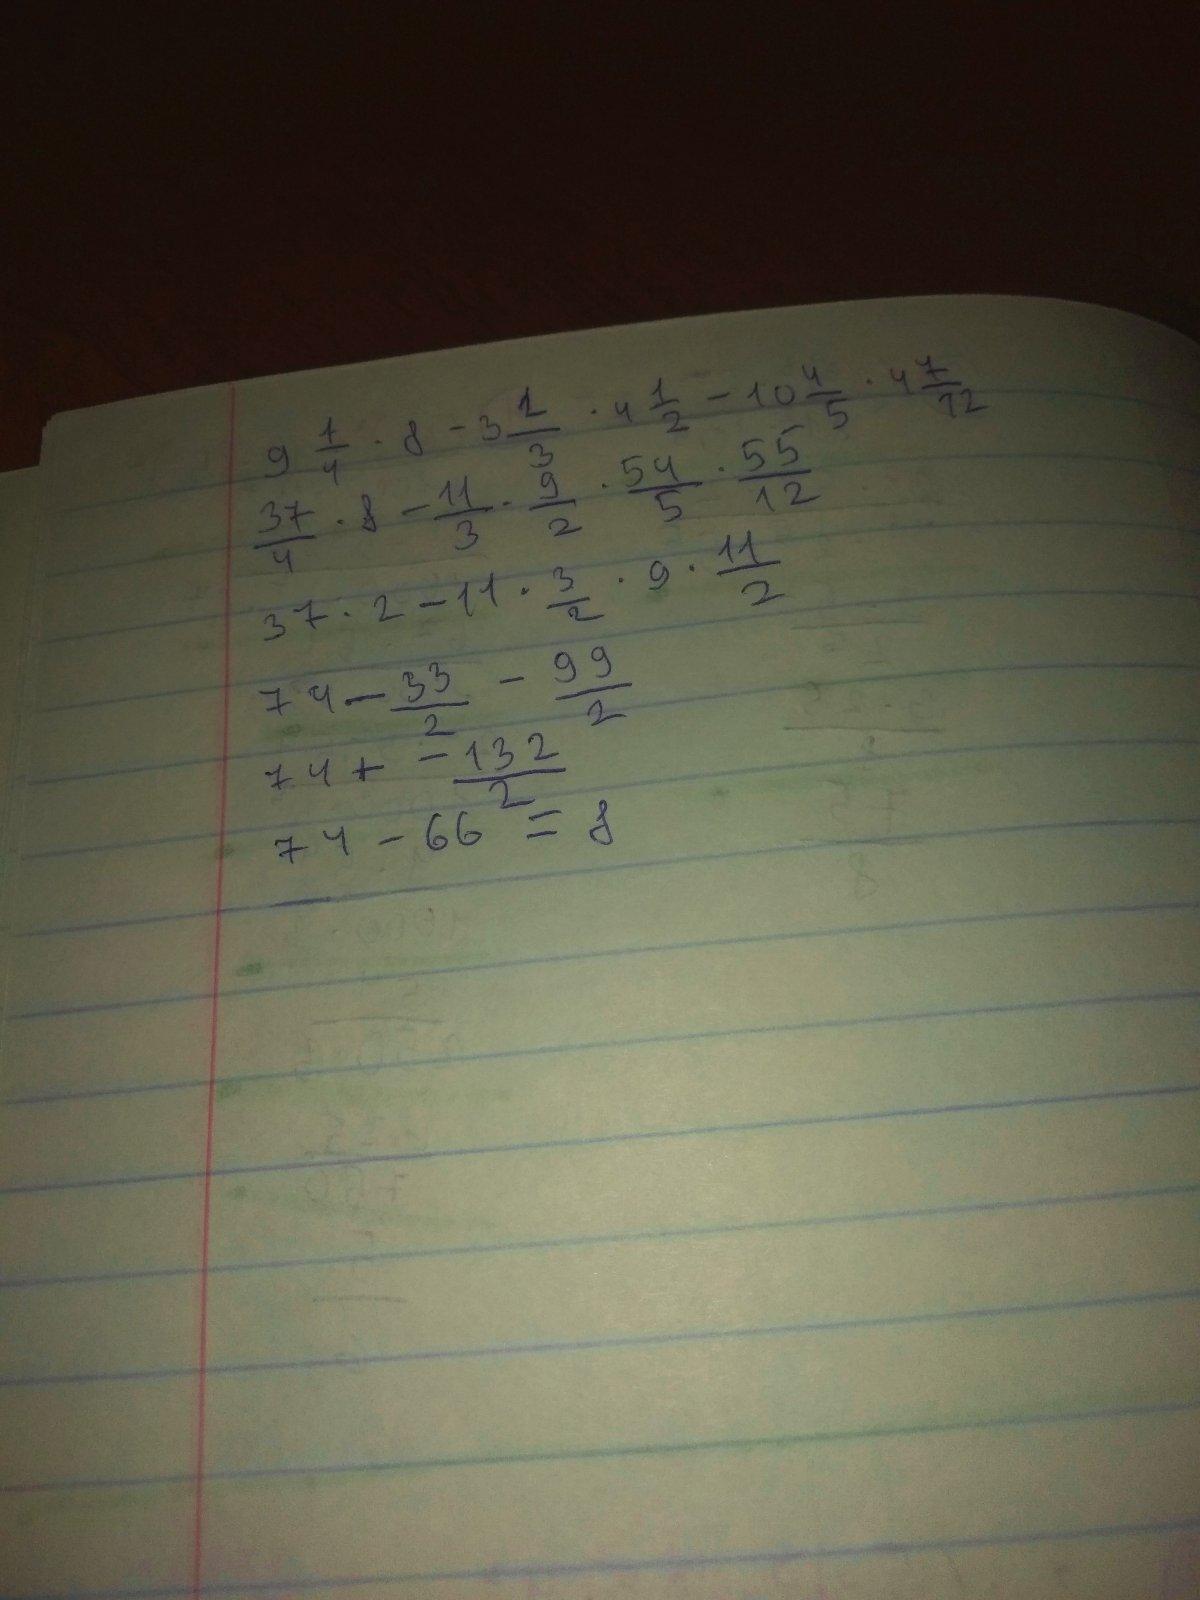 9 1/4 · 8 - 3 2/3 · 4 1/2 - 10 4/5 · 4 7/12
37/4 · 8 - 11/3 · 9/2 · 54/5 · 55/12
37 · 2 - 11 · 3/2 · 9 · 11/2
74 - 33/2 - 99/2
74 + - 132/2
74 - 66 = 8